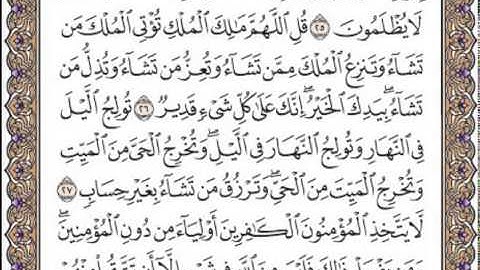 لَا يُظۡلَمُونَ ٢٥ قُلِ ٱللَّهُمَّ مَٰلِكَ ٱلۡمُلۡكِ تُؤۡتِي ٱلۡمُلۡكَ مَن
تَشَآءُ وَتَنزِعُ ٱلۡمُلۡكَ مِمَّن تَشَآءُ وَتُعِزُّ مَن تَشَآءُ وَتُذِلُّ مَن
تَشَآءُۖ بِيَدِكَ ٱلۡخَيۡرُۖ إِنَّكَ عَلَىٰ كُلِّ شَيۡءٖ قَدِيرٞ ٢٦ تُولِجُ ٱلَّيۡلَ
فِي ٱلنَّهَارِ وَتُولِجُ ٱلنَّهَارَ فِي ٱلَّيۡلِۖ وَتُخۡرِجُ ٱلۡحَيَّ مِنَ ٱلۡمَيِّتِ
وَتُخۡرِجُ ٱلۡمَيِّتَ مِنَ ٱلۡحَيِّۖ وَتَرۡزُقُ مَن تَشَآءُ بِغَيۡرِ حِسَابٖ ٢٧
لَّا يَتَّخِذِ ٱلۡمُؤۡمِنُونَ ٱلۡكَٰفِرِينَ أَوۡلِيَآءَ مِن دُونِ ٱلۡمُؤۡمِنِينَۖ